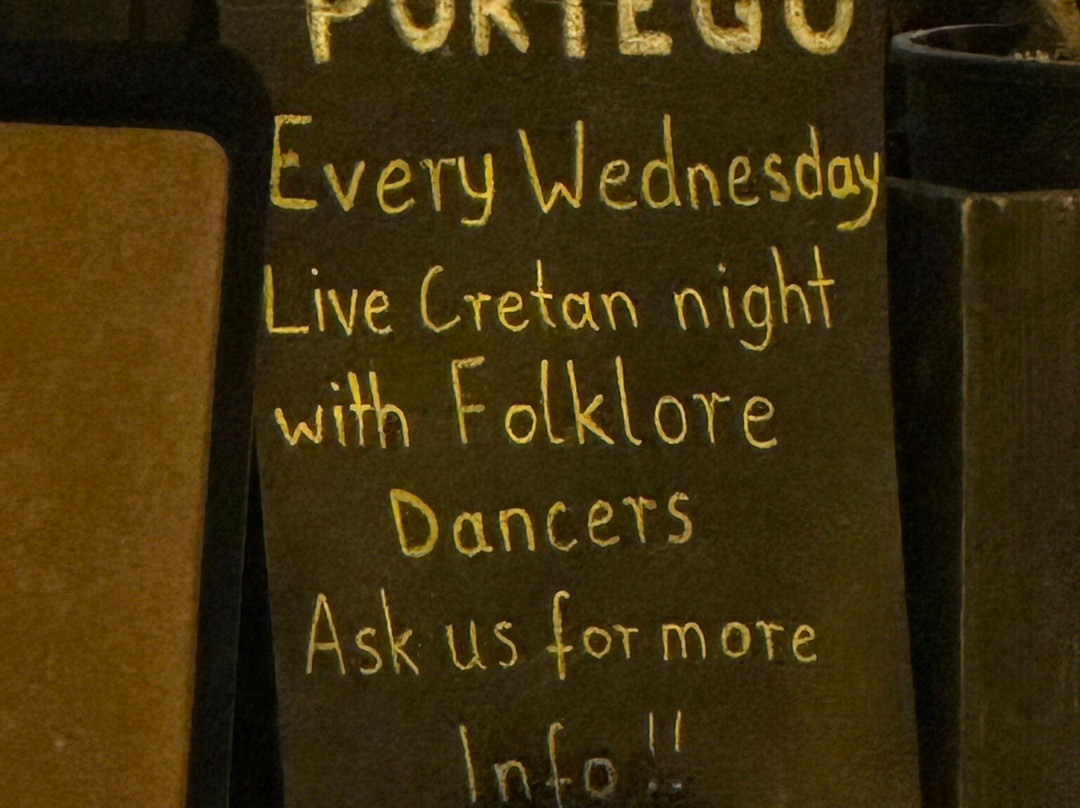 PORTEGO
Every Wednesday
Live Cretan night
with Folklore
Dancers
Ask us for more
Info !!